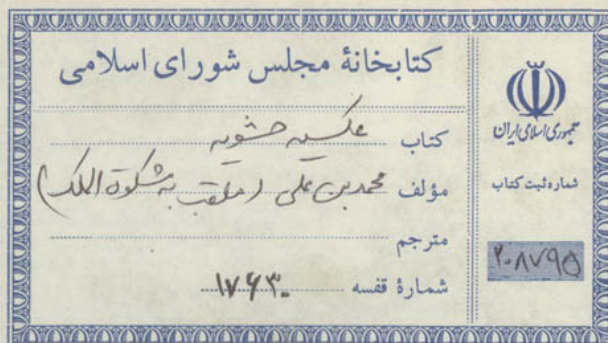 کتابخانهٔ مجلس شورای اسلامی
کتاب عکسیه حشویه
مؤلف محمد بن علی (ملقب به مشکوة الملک)
مترجم
شمارهٔ قفسه ۱۷۶۳۰
جمهوری اسلامی ایران
شماره ثبت کتاب
۲۰۸۷۹۵